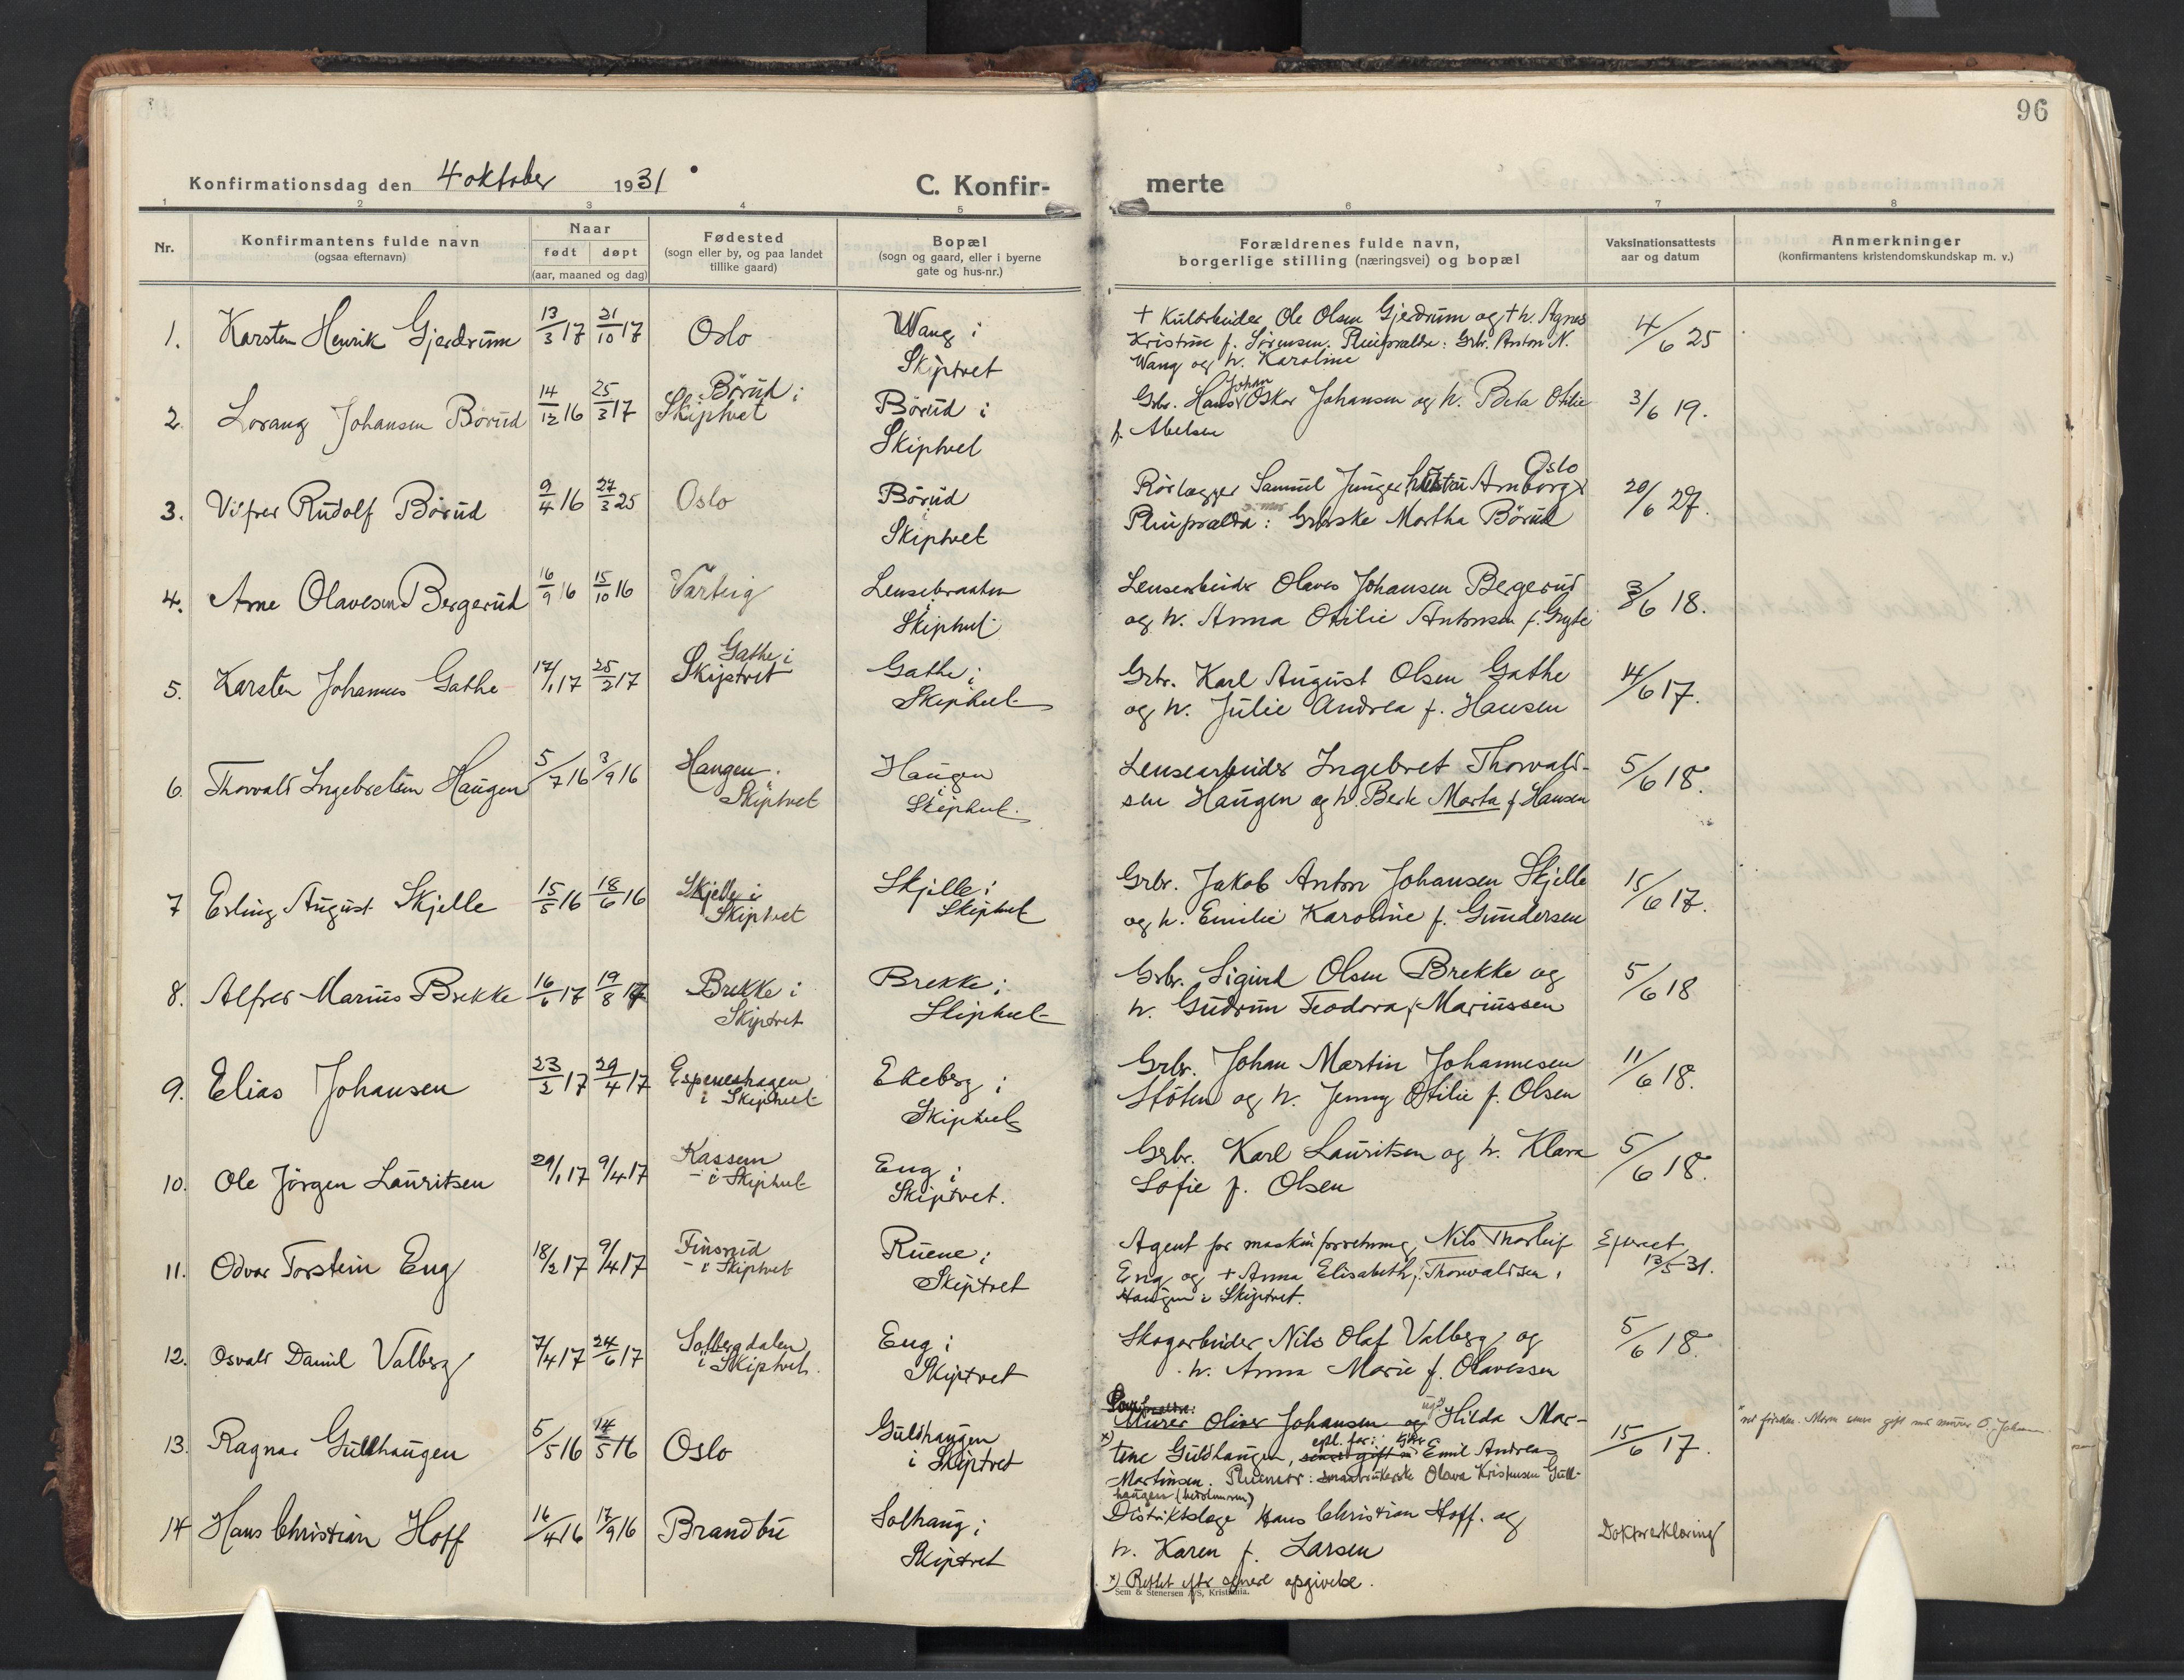 96
Konfirmationsdag den 4 oktober 1931
C. Konfir-
merte
1 2 3 4 5 6 7 8
Nr.
Konfirmantens fulde navn
(ogsaa efternavn)
Naar
født døpt
(aar, maaned og dag)
Fødested
(sogn eller by, og paa landet
tillike gaard)
Bopæl
(sogn og gaard, eller i byerne
gate og hus-nr.)
Forældrenes fulde navn,
borgerlige stilling (næringsvei) og bopæl
Vaksinationsattests
aar og datum
Anmerkninger
(konfirmantens kristendomskundskap m. v.)
1. Karsten Henrik Gjerdrum 13/3 17 21/10 17 Oslo
Wang i
Skiptvet
+ Ole Olsen Gjerdrum og + h. Agnes
Kristine f. Sörensen. Pleiforældre: Grbr. Anton N.
Wang og h. Karoline
4/6 25
2. Lorang Johansen Börud 14/12 16 25/3 17
Börud i
Skiptvet
Börud i
Skiptvet
Grbr. Hans Johan Oskar Johansen og h. Otilie
f. Abelsen
3/6 19.
3. Vilfred Rudolf Börud 9/4 16 27/3 25 Oslo
Börud
i
Skiptvet
Rörlægger Samuel Arnborg Oslo
Pleiforældre: Grbrske Martha Börud
20/6 27.
4. Arne Olavesen Bergerud 16/9 16 15/10 16 Varteig
Lensebraaten
i
Skiptvet
Lensearbeider Olaves Johansen Bergerud
og h. Anna Otilie Antonsen f.
3/6 18.
5. Karsten Johannes Gathe 17/1 17 25/2 17
Gathe i
Skiptvet
Gathe i
Skiptvet
Grbr. Karl August Olsen Gathe
og h. Julie Andrea f. Hansen
14/6 17.
6. Thorvald Ingebretsen Haugen 5/7 16 3/9 16
Haugen i
Skiptvet
Haugen
i
Skiptvet.
Lensearbeider Ingebret Thorvald-
sen Haugen og h. Marta f. Hansen
5/6 18.
7 Erling August Skjelle 15/5 16 18/6 16
Skjelle i
Skiptvet
Skjelle i
Skiptvet
Grbr. Jakob Anton Johansen Skjelle
og h. Emilie Karoline f. Gundersen
15/6 17.
8. Alfred Marius Brekke 16/6 17 19/8 17
Brekke i
Skiptvet
Brekke i
Skiptvet
Grbr. Sigurd Olsen Brekke og
h. Gudrun Teodora f. Mariussen
5/6 18
9. Elias Johansen 23/2 17 29/4 17
Espeneshagen
i Skiptvet
Ekeberg i
Skiptvet
Grbr. Johan Martin Johannesen
Stöten og h. Jenny Otilie f. Olsen
11/6 18.
10. Ole Jörgen Lauritsen 29/1 17 9/4 17
Kassem
- i Skiptvet
Eng i
Skiptvet.
Grbr. Karl Lauritsen og h. Klara
Sofie f. Olsen
5/6 18.
11. Odvar Torstein Eng 18/2 17 9/4 17
Finsrud
- i Skiptvet
Ruene i
Skiptvet
Agent for maskinforretning Nils Thorleif
Eng og + Anna Elisabeth f. Thorvaldsen,
Haugen i Skiptvet.
13/5 31.
12. Osvald Daniel Valberg 7/4 17 24/6 17
Solbergdalen
i Skiptvet.
Eng i
Skiptvet
Skogarbeider Nils Olaf Valberg og
h. Anna Marie f. Olavessen
5/6 18.
13. Ragnar Gullhaugen 5/5 16 14/5 16 Oslo
Guldhaugen
i Skiptvet
Murer Oliver Johansen og ug. Hilda Mar-
x) tine Guldhaugen, senere gift m Emil Andreas
Martinsen. Pleiemor: smaabrukerske Olava Kristensen Gull-
haugen (bestemoren)
15/6 17.
14 Hans Christian Hoff 16/4 16 17/9 16 Brandbu
Solhaug i
Skiptvet
Distriktslæge Hans Christian Hoff. og
h. Karen f. Larsen
Doktorerklæring
x) Rettet efter senere opgivelse.
Sem & Stenersen A/S, Kristiania.